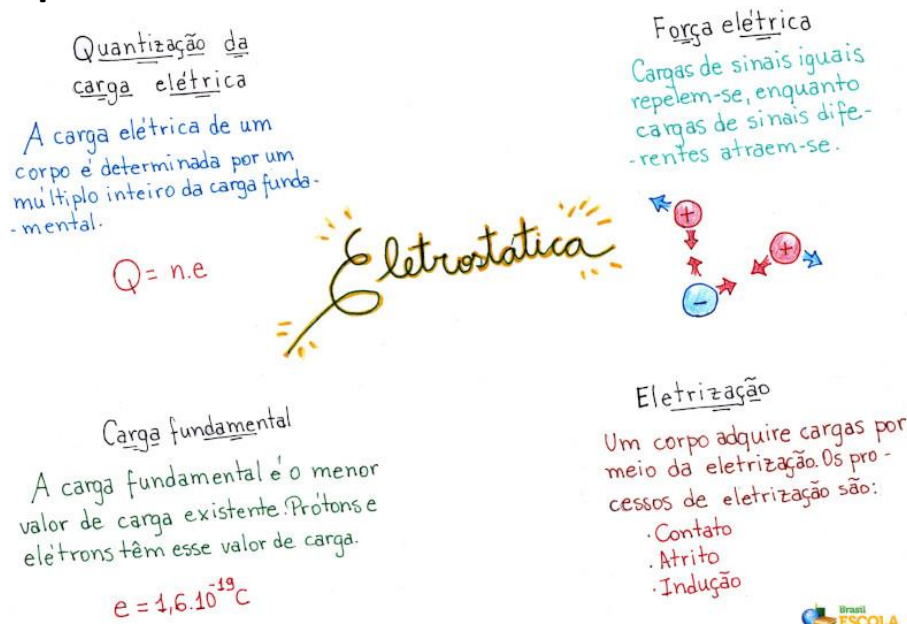 Quantização da
carga elétrica
A carga elétrica de um
corpo é determinada por um
múltiplo inteiro da carga funda-
-mental.
Q = n.e
Eletrostática
Força elétrica
Cargas de sinais iguais
repelem-se, enquanto
cargas de sinais dife-
-rentes atraem-se.
+
+
-
Carga fundamental
A carga fundamental é o menor
valor de carga existente. Prótons e
elétrons têm esse valor de carga.
e = 1,6.10⁻¹⁹C
Eletrização
Um corpo adquire cargas por
meio da eletrização. Os pro-
cessos de eletrização são:
· Contato
. Atrito
· Indução
Brasil
ESCOLA